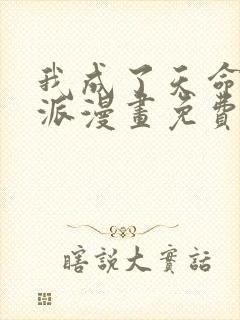 我成了天命
派漫畫免費
瞎說大實話